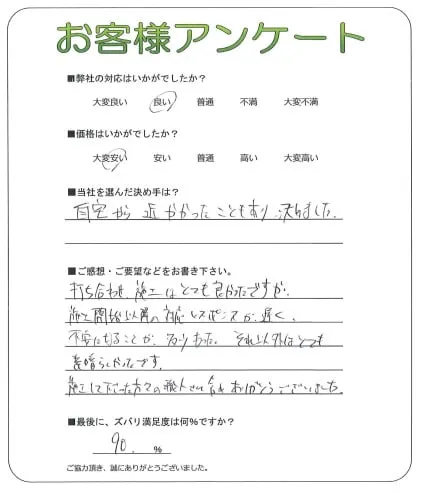 お客様アンケート
■弊社の対応はいかがでしたか？
大変良い 良い 普通 不満 大変不満
■価格はいかがでしたか？
大変安い 安い 普通 高い 大変高い
■当社を選んだ決め手は？
自宅から近かかったこともあり決めました。
■ご感想・ご要望などをお書き下さい。
打ち合わせ、施工はとても良かったですが、
施工開始以前の対応レスポンスが遅く、
不安になることが多々あった。それ以外はとても
素晴らしかったです。
施工して下った方々の職人さん ありがとうございました。
■最後に、ズバリ満足度は何％ですか？
90. ％
ご協力頂き、誠にありがとうございました。